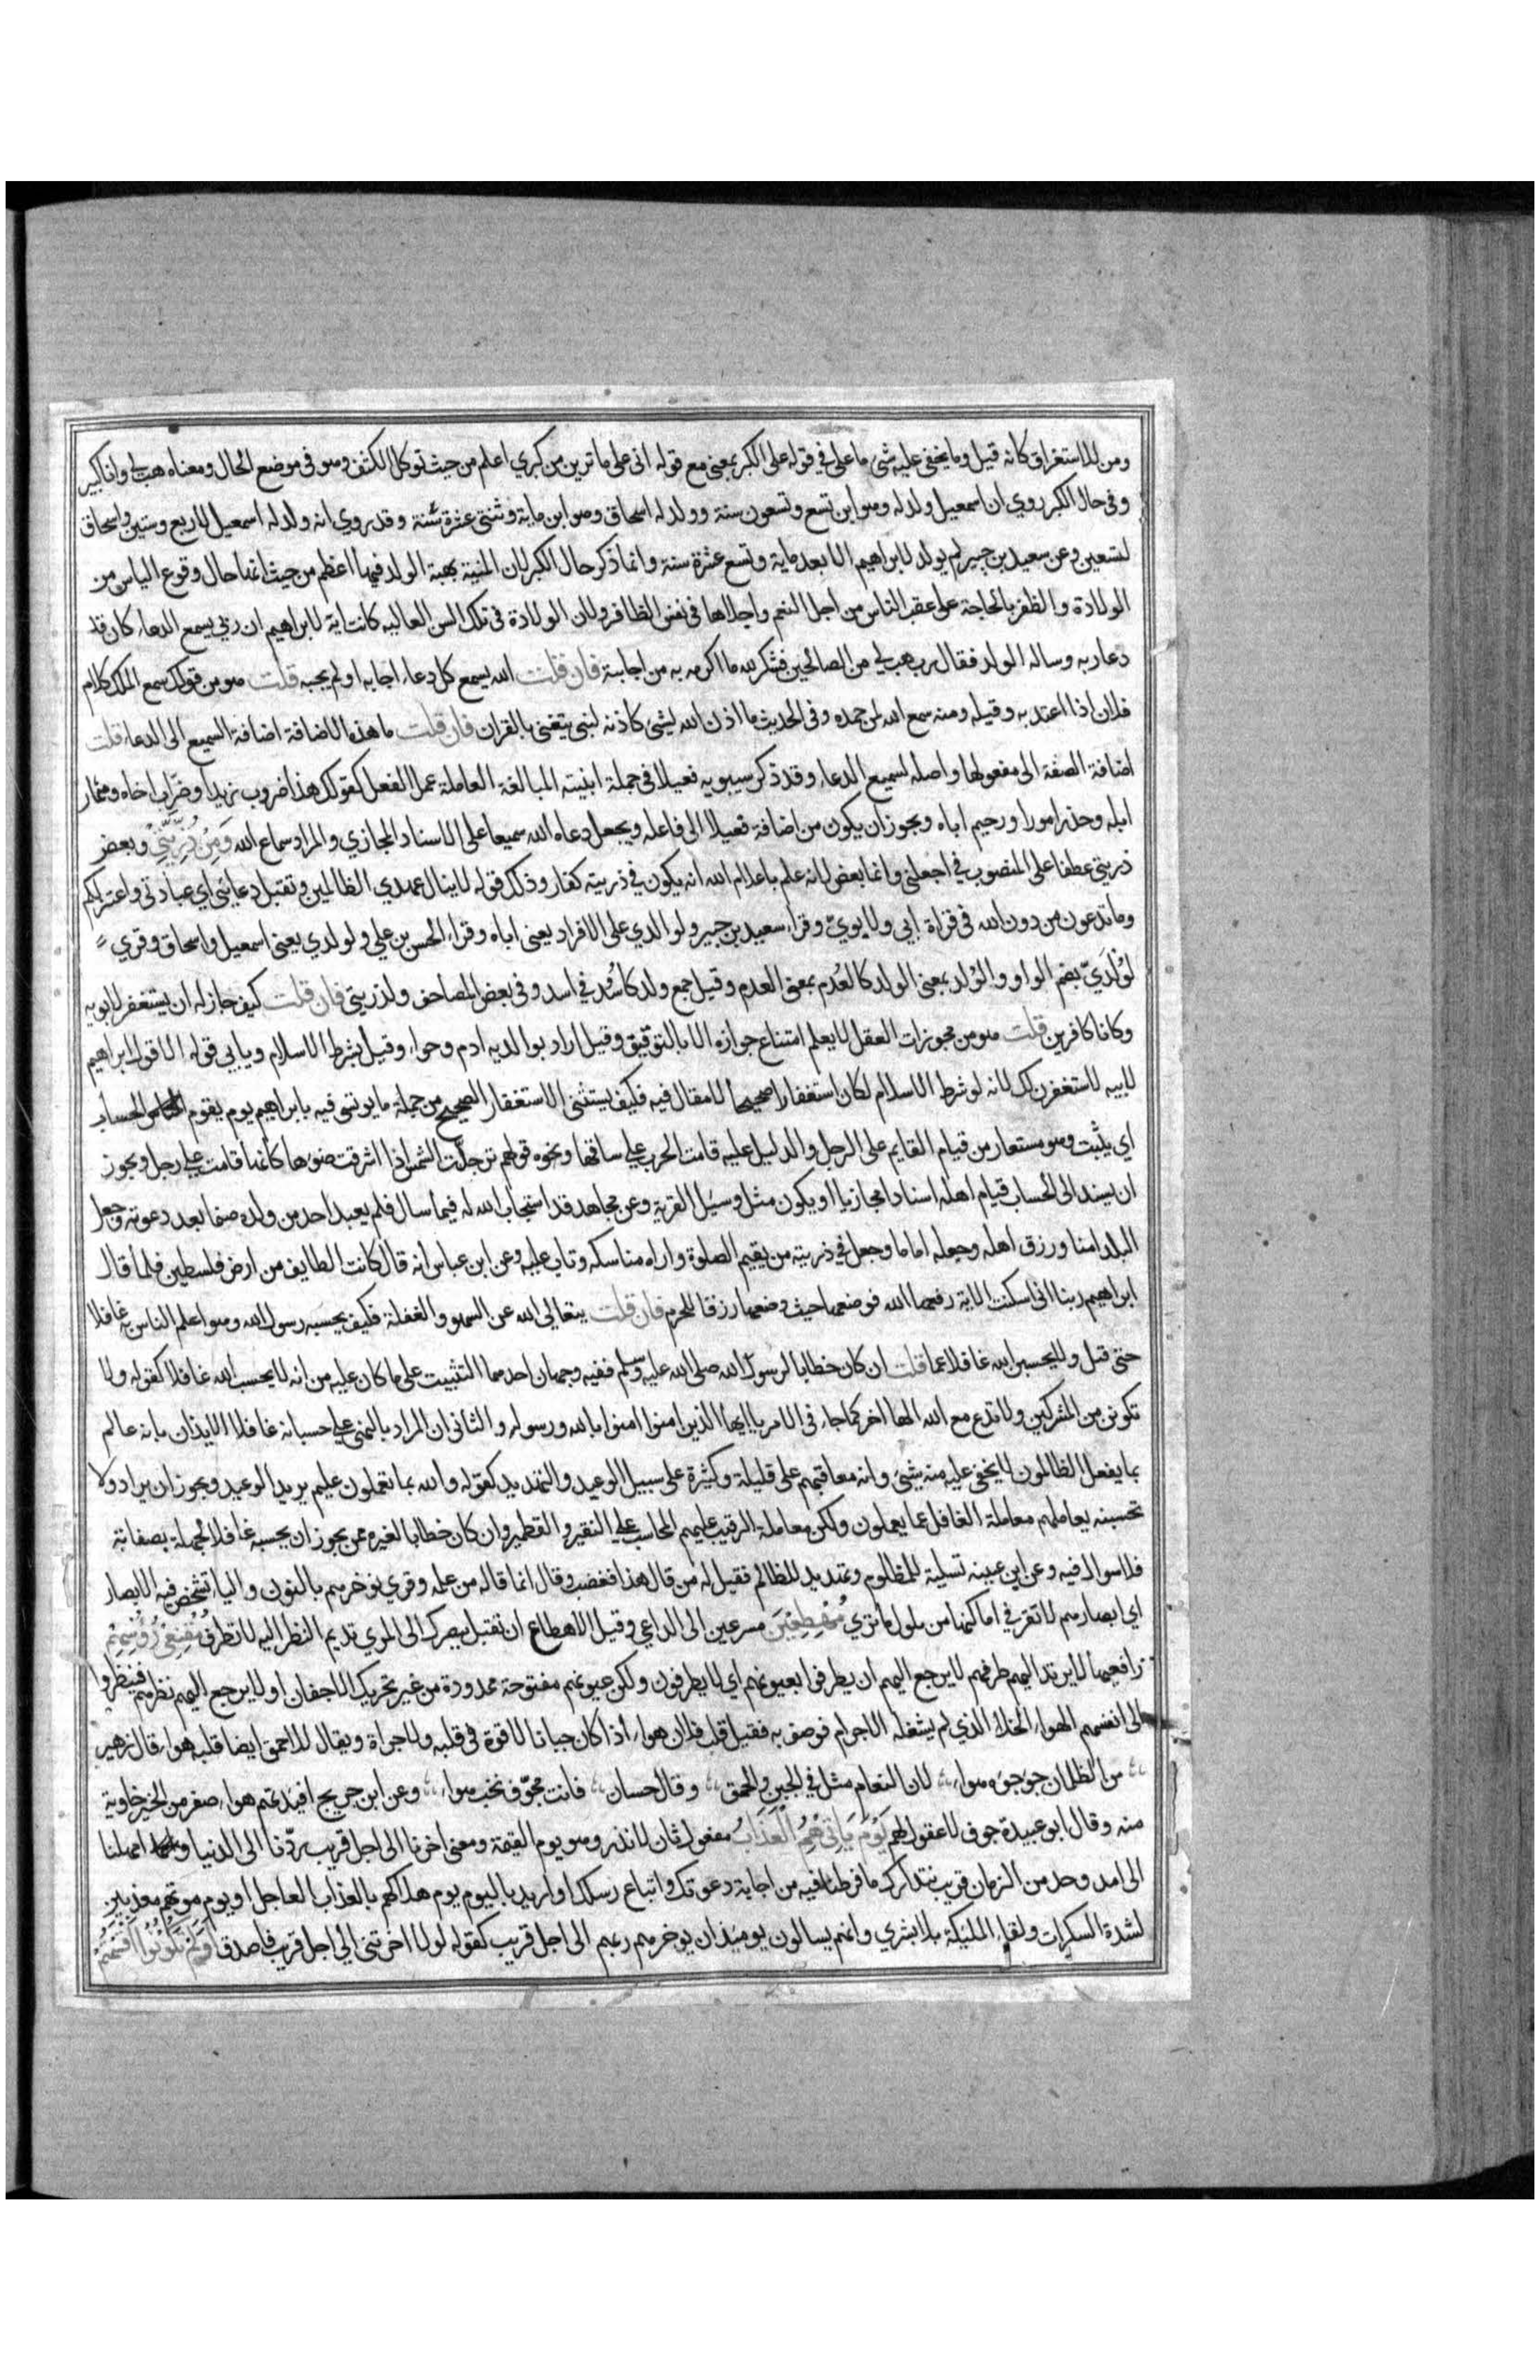 ومن للاستغراق كانه قيل وما يخفى عليه شئ ما على في قوله على الكبر بمعنى مع قوله انى على ما ترين من كبري اعلم من حيث توكل الكتف وهو فى موضع الحال ومعناه هب لى وانا كبير
وفى حال الكبر روي ان اسمعيل ولد له وهو ابن تسع وتسعون سنة وولد له اسحاق وهو ابن ماية وثنتى عشرة سنة وقد روي انه ولد له اسمعيل لاربع وستين واسحاق
لتسعين وعن سعيد بن جبير لم يولد لابراهيم الا بعد ماية وتسع عشرة سنة وانما ذكر حال الكبر لان المنية بهبة الولد فيها اعظم من حيث انها حال وقوع الياس من
الولادة والظفر بالحاجة على عقب الناس من اجل النعم واجلاها فى نفس الظافر ولان الولادة فى تلك السن العاليه كانت اية لابراهيم ان ربى يسمع الدعاء كان قد
دعا ربه وساله الولد فقال رب هب لي من الصالحين فشكر لله ما اكرمه به من اجابة فان قلت الله يسمع كل دعاء اجابه او لم يجبه قلت هو من قولك سمع الملك كلام
فلان اذا اعتد به وقيله ومنه سمع الله لمن حمده وفى الحديث ما اذن الله لشئ كاذنه لنبى يتغنى بالقران فان قلت ما هذه الاضافة اضافة السميع الى الدعاء قلت
اضافة الصفة الى مفعولها واصله لسميع الدعاء وقد ذكر سيبويه فعيلا فى جملة ابنيته المبالغة العاملة عمل الفعل كقولك هذا ضروب زيدا وضراب اخاه ومنحار
ابله وحذر امورا ورحيم اباه ويجوز ان يكون من اضافة فعيلا الى فاعله ويجعل دعاه الله سميعا على الاسناد المجازي والمراد سماع الله وَمِنْ ذُرِّيَّتِيْ وبعض
ذريتى عطفا على المنصوب فى اجعلنى وانما بعض لانه علم باعلام الله انه يكون فى ذريته كفار وذلك قوله لاينال عهدي الظالمين وتقبل دعايى اي عبادتى واعتزلكم
وما تدعون من دون الله فى قراة ابي ولابويّ وقراء سعيد بن جبير ولوالدي على الافراد يعنى اباه وقراء الحسن بن علي ولولدي يعنى اسمعيل واسحاق وقري
لوُلدَيّ بضم الواو والوُلد بمعنى الولد كالعُدم بمعنى العدم وقيل جمع ولد كاسُد في اسد وفى بعض المصاحف ولذريتى فان قلت كيف جاز له ان يستغفر لابويه
وكانا كافرين قلت هو من مجوزات العقل لايعلم امتناع جوازه الا بالتوقيق وقيل اراد بوالديه ادم وحواء وقيل بشرط الاسلام ويابى قوله الا قول ابراهيم
لابيه لاستغفرن لك لانه لو شرط الاسلام لكان استغفارا صحيحا لامقال فيه فكيف يستثنى الاستغفار الصحيح من جملة ما يوتسى فيه بابراهيم يوم يقوم الحساب
اي يثبت وهو مستعار من قيام القايم على الرجل والدليل عليه قامت الحرب على ساقها ونحوه قولهم ترجلت الشمس اذا اشرقت ضوءها كانها قامت على رجل ويجوز
ان يسند الى الحساب قيام اهله اسنادا مجازيا او يكون مثل وسيل القرية وعن مجاهد قد استجاب الله له فيما سال فلم يعبد احد من ولده صنما بعد دعوته وجعل
البلد امنا ورزق اهله وجعله اماما وجعل فى ذريته من يقيم الصلوة واراه مناسكه وتاب عليه وعن ابن عباس انه قال كانت الطايف من ارض فلسطين فلما قال
ابراهيم ربنا انى اسكنت الاية رفعها الله فوضعها حيث وضعها رزقا للحرم فان قلت يتعالى الله عن السهو والغفلة فكيف يحسبه رسول الله وهو اعلم الناس به غافلا
حتى قيل ولا يحسبن الله غافلا عما قلت ان كان خطابا لرسول الله صلى الله عليه وسلم ففيه وجهان احدهما التثبيت على ما كان عليه من انه لايحسب الله غافلا كقوله ولا
تكونن من المشركين ولاتدع مع الله الها اخر كما جاء فى الامر ياايها الذين امنوا امنوا بالله ورسوله والثانى ان المراد بالنهى على حسبانه غافلا الايذان بانه عالم
بما يفعل الظالمون لايخفى عليه منه شئ وانه معاقبهم على قليلة وكثيرة على سبيل الوعيد والتهديد كقوله والله بما تعملون عليم يريد الوعيد ويجوز ان يراد ولا
تحسبنه يعاملهم معاملة الغافل عما يعملون ولكن معاملة الرقيب عليهم المحاسب على النقير والقطمير وان كان خطابا لغيره ممن يجوز ان يحسبه غافلا لجهله بصفاته
فلا سوال فيه وعن ابن عيينه تسلية للمظلوم وتهديد للظالم فقيل له من قال هذا فغضب وقال انما قاله من علمه وقري نوخرهم بالنون والياء تشخص فيه الابصار
اي ابصارهم لاتقر في اماكنها من هول ما تري مُهْطِعِيْنَ مسرعين الى الداعي وقيل الاهطاع ان تقبل ببصرك الى المري تديم النظر اليه لاتطرف مُقْنِعِىْ رُؤُسِهِمْ
رافعيها لايرتد اليهم طرفهم لايرجع اليهم ان يطرفوا بعيونهم اي لايطرفون ولكن عيونهم مفتوحة ممدودة من غير تحريك الاجفان او لايرجع اليهم نظرهم فينظروا
الى انفسهم الهواء الخلاء الذي لم يشغله الاجرام فوصف به فقيل قلب فلان هواء اذا كان جبانا لاقوة فى قلبه ولاجراة ويقال للاحمق ايضا قلبه هواء قال زهير
من الظلمان جوجؤه هواء لان النعام مثل في الجبن والحمق وقال حسان فانت مجوّف نخب هواء وعن ابن جريج افيدتهم هواء صفر من الخير خاوية
منه وقال ابو عبيدة جوف لاعقول لهم يَوْمَ يَاْتِيْهِمُ الْعَذَابُ مفعول ثان لانذر وهو يوم القيمة ومعنى اخرنا الى اجل قريب ردّنا الى الدنيا وامهلنا
الى امد وحد من الزمان قريب نتدارك ما فرطنا فيه من اجابة دعوتك واتباع رسلك او اريد باليوم يوم هلاكهم بالعذاب العاجل او يوم موتهم معذبين
لشدة السكرات ولقاء الملئيكة بلا بشري وانهم يسالون يوميذ ان يوخرهم ربهم الى اجل قريب كقوله لولا اخرتنى الى اجل قريب فاصدق اَوَلَمْ تَكُوْنُوْا اَقْسَمْتُمْ